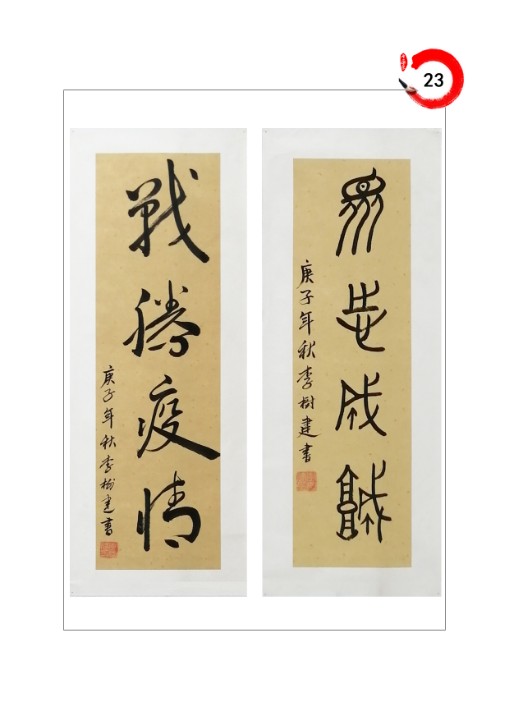 23
眾志成城
庚子年秋李樹建書
戰勝疫情
庚子年秋李樹建書